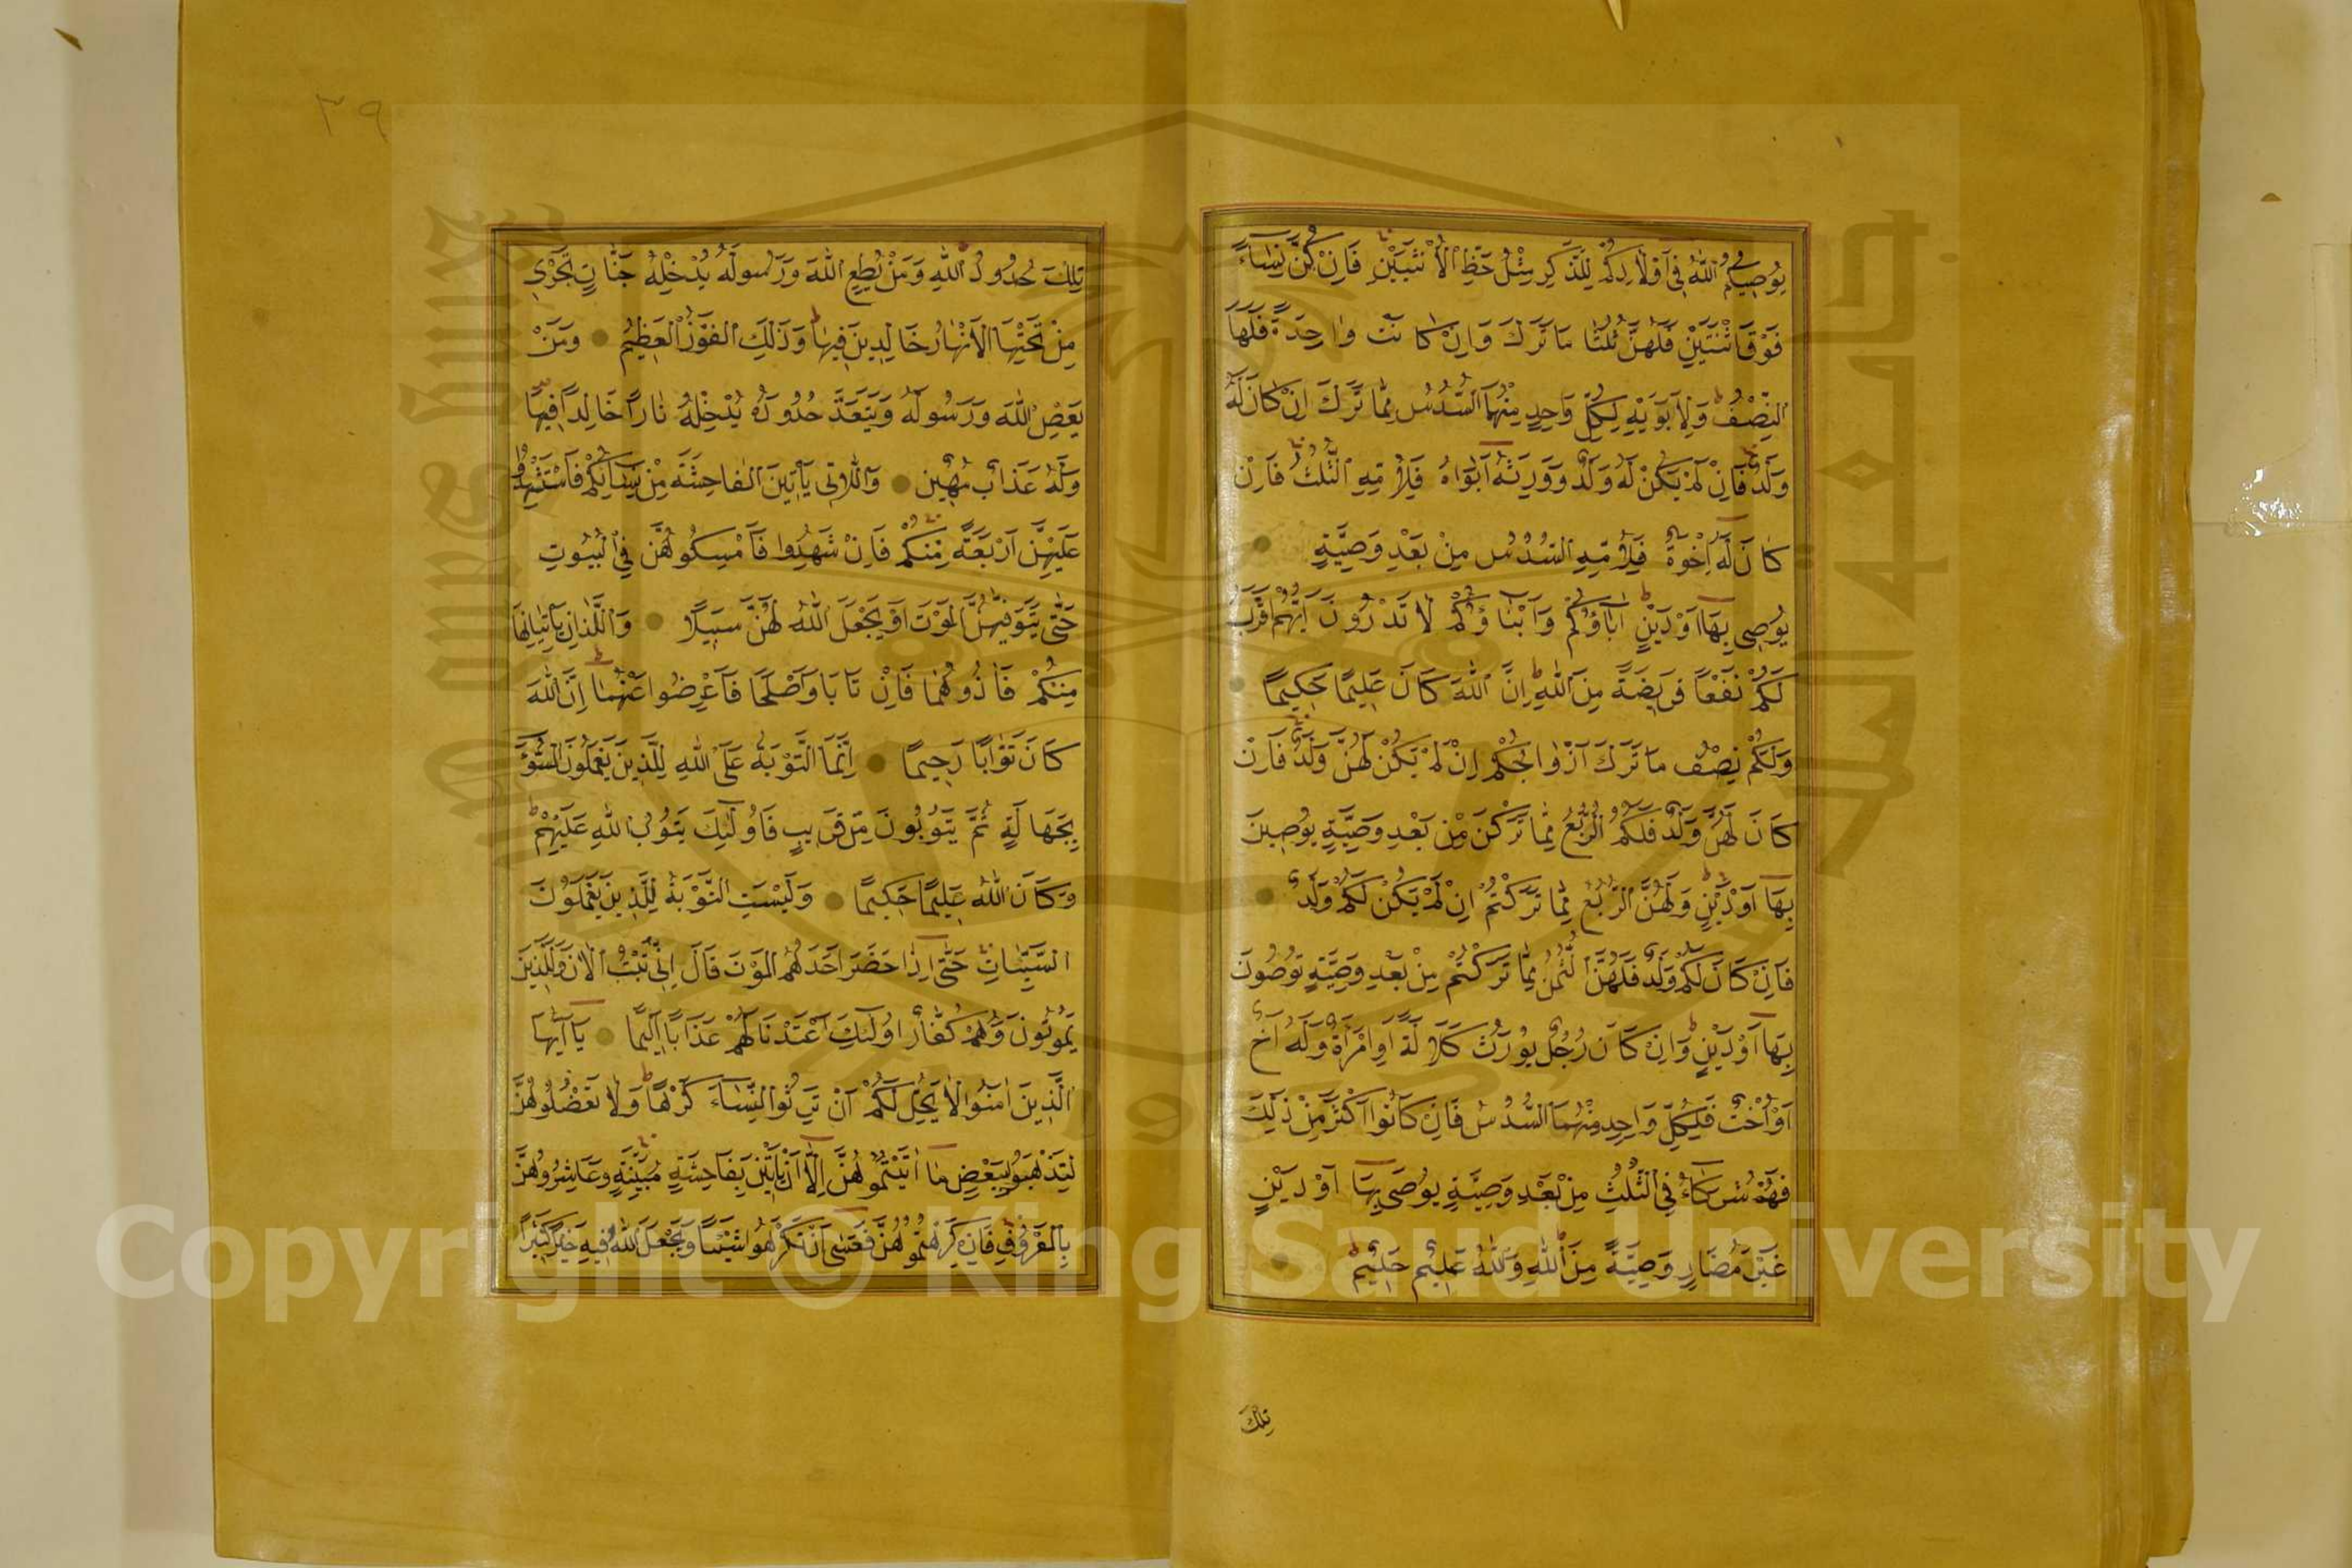 يُوصِيكُمُ اللّٰهُ فِي أَوْلَادِكُمْ لِلذَّكَرِ مِثْلُ حَظِّ الْأُنْثَيَيْنِ فَإِنْ كُنَّ نِسَاءً
فَوْقَ اثْنَتَيْنِ فَلَهُنَّ ثُلُثَا مَا تَرَكَ وَإِنْ كَانَتْ وَاحِدَةً فَلَهَا
النِّصْفُ وَلِأَبَوَيْهِ لِكُلِّ وَاحِدٍ مِنْهُمَا السُّدُسُ مِمَّا تَرَكَ إِنْ كَانَ لَهُ
وَلَدٌ فَإِنْ لَمْ يَكُنْ لَهُ وَلَدٌ وَوَرِثَهُ أَبَوَاهُ فَلِأُمِّهِ الثُّلُثُ فَإِنْ
كَانَ لَهُ إِخْوَةٌ فَلِأُمِّهِ السُّدُسُ مِنْ بَعْدِ وَصِيَّةٍ
يُوصِي بِهَا أَوْ دَيْنٍ آبَاؤُكُمْ وَأَبْنَاؤُكُمْ لَا تَدْرُونَ أَيُّهُمْ أَقْرَبُ
لَكُمْ نَفْعًا فَرِيضَةً مِنَ اللّٰهِ إِنَّ اللّٰهَ كَانَ عَلِيمًا حَكِيمًا
وَلَكُمْ نِصْفُ مَا تَرَكَ أَزْوَاجُكُمْ إِنْ لَمْ يَكُنْ لَهُنَّ وَلَدٌ فَإِنْ
كَانَ لَهُنَّ وَلَدٌ فَلَكُمُ الرُّبُعُ مِمَّا تَرَكْنَ مِنْ بَعْدِ وَصِيَّةٍ يُوصِينَ
بِهَا أَوْ دَيْنٍ وَلَهُنَّ الرُّبُعُ مِمَّا تَرَكْتُمْ إِنْ لَمْ يَكُنْ لَكُمْ وَلَدٌ
فَإِنْ كَانَ لَكُمْ وَلَدٌ فَلَهُنَّ الثُّمُنُ مِمَّا تَرَكْتُمْ مِنْ بَعْدِ وَصِيَّةٍ تُوصُونَ
بِهَا أَوْ دَيْنٍ وَإِنْ كَانَ رَجُلٌ يُورَثُ كَلَالَةً أَوِ امْرَأَةٌ وَلَهُ أَخٌ
أَوْ أُخْتٌ فَلِكُلِّ وَاحِدٍ مِنْهُمَا السُّدُسُ فَإِنْ كَانُوا أَكْثَرَ مِنْ ذَلِكَ
فَهُمْ شُرَكَاءُ فِي الثُّلُثِ مِنْ بَعْدِ وَصِيَّةٍ يُوصَى بِهَا أَوْ دَيْنٍ
غَيْرَ مُضَارٍّ وَصِيَّةً مِنَ اللّٰهِ وَاللّٰهُ عَلِيمٌ حَلِيمٌ
تِلْكَ
٣٩
تِلْكَ حُدُودُ اللّٰهِ وَمَنْ يُطِعِ اللّٰهَ وَرَسُولَهُ يُدْخِلْهُ جَنَّاتٍ تَجْرِي
مِنْ تَحْتِهَا الْأَنْهَارُ خَالِدِينَ فِيهَا وَذَلِكَ الْفَوْزُ الْعَظِيمُ وَمَنْ
يَعْصِ اللّٰهَ وَرَسُولَهُ وَيَتَعَدَّ حُدُودَهُ يُدْخِلْهُ نَارًا خَالِدًا فِيهَا
وَلَهُ عَذَابٌ مُهِينٌ وَاللَّاتِي يَأْتِينَ الْفَاحِشَةَ مِنْ نِسَائِكُمْ فَاسْتَشْهِدُوا
عَلَيْهِنَّ أَرْبَعَةً مِنْكُمْ فَإِنْ شَهِدُوا فَأَمْسِكُوهُنَّ فِي الْبُيُوتِ
حَتَّى يَتَوَفَّيهُنَّ الْمَوْتُ أَوْ يَجْعَلَ اللّٰهُ لَهُنَّ سَبِيلًا وَاللَّذَانِ يَأْتِيَانِهَا
مِنْكُمْ فَآذُوهُمَا فَإِنْ تَابَا وَأَصْلَحَا فَأَعْرِضُوا عَنْهُمَا إِنَّ اللّٰهَ
كَانَ تَوَّابًا رَحِيمًا إِنَّمَا التَّوْبَةُ عَلَى اللّٰهِ لِلَّذِينَ يَعْمَلُونَ السُّوءَ
بِجَهَالَةٍ ثُمَّ يَتُوبُونَ مِنْ قَرِيبٍ فَأُولَئِكَ يَتُوبُ اللّٰهُ عَلَيْهِمْ
وَكَانَ اللّٰهُ عَلِيمًا حَكِيمًا وَلَيْسَتِ التَّوْبَةُ لِلَّذِينَ يَعْمَلُونَ
السَّيِّئَاتِ حَتَّى إِذَا حَضَرَ أَحَدَهُمُ الْمَوْتُ قَالَ إِنِّي تُبْتُ الْآنَ وَلَا الَّذِينَ
يَمُوتُونَ وَهُمْ كُفَّارٌ أُولَئِكَ أَعْتَدْنَا لَهُمْ عَذَابًا أَلِيمًا يَا أَيُّهَا
الَّذِينَ آمَنُوا لَا يَحِلُّ لَكُمْ أَنْ تَرِثُوا النِّسَاءَ كَرْهًا وَلَا تَعْضُلُوهُنَّ
لِتَذْهَبُوا بِبَعْضِ مَا آتَيْتُمُوهُنَّ إِلَّا أَنْ يَأْتِينَ بِفَاحِشَةٍ مُبَيِّنَةٍ وَعَاشِرُوهُنَّ
بِالْمَعْرُوفِ فَإِنْ كَرِهْتُمُوهُنَّ فَعَسَى أَنْ تَكْرَهُوا شَيْئًا وَيَجْعَلَ اللّٰهُ فِيهِ خَيْرًا كَثِيرًا
Copyright © King Saud University